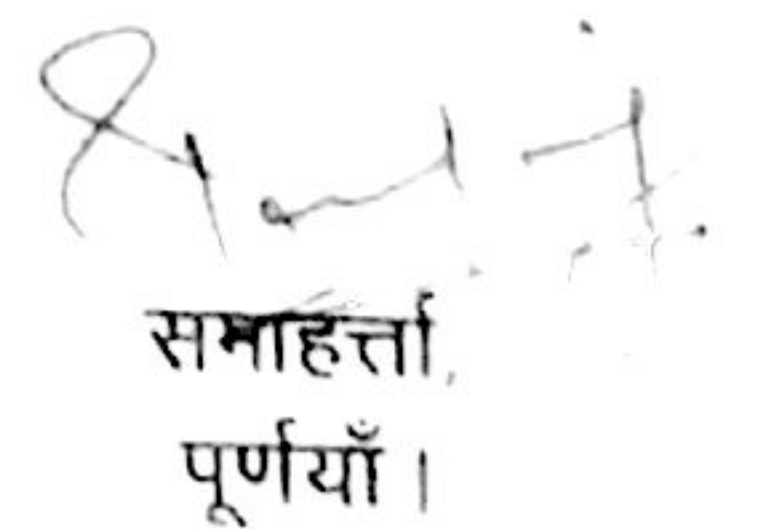 समाहर्त्ता,
पूर्णयाँ।